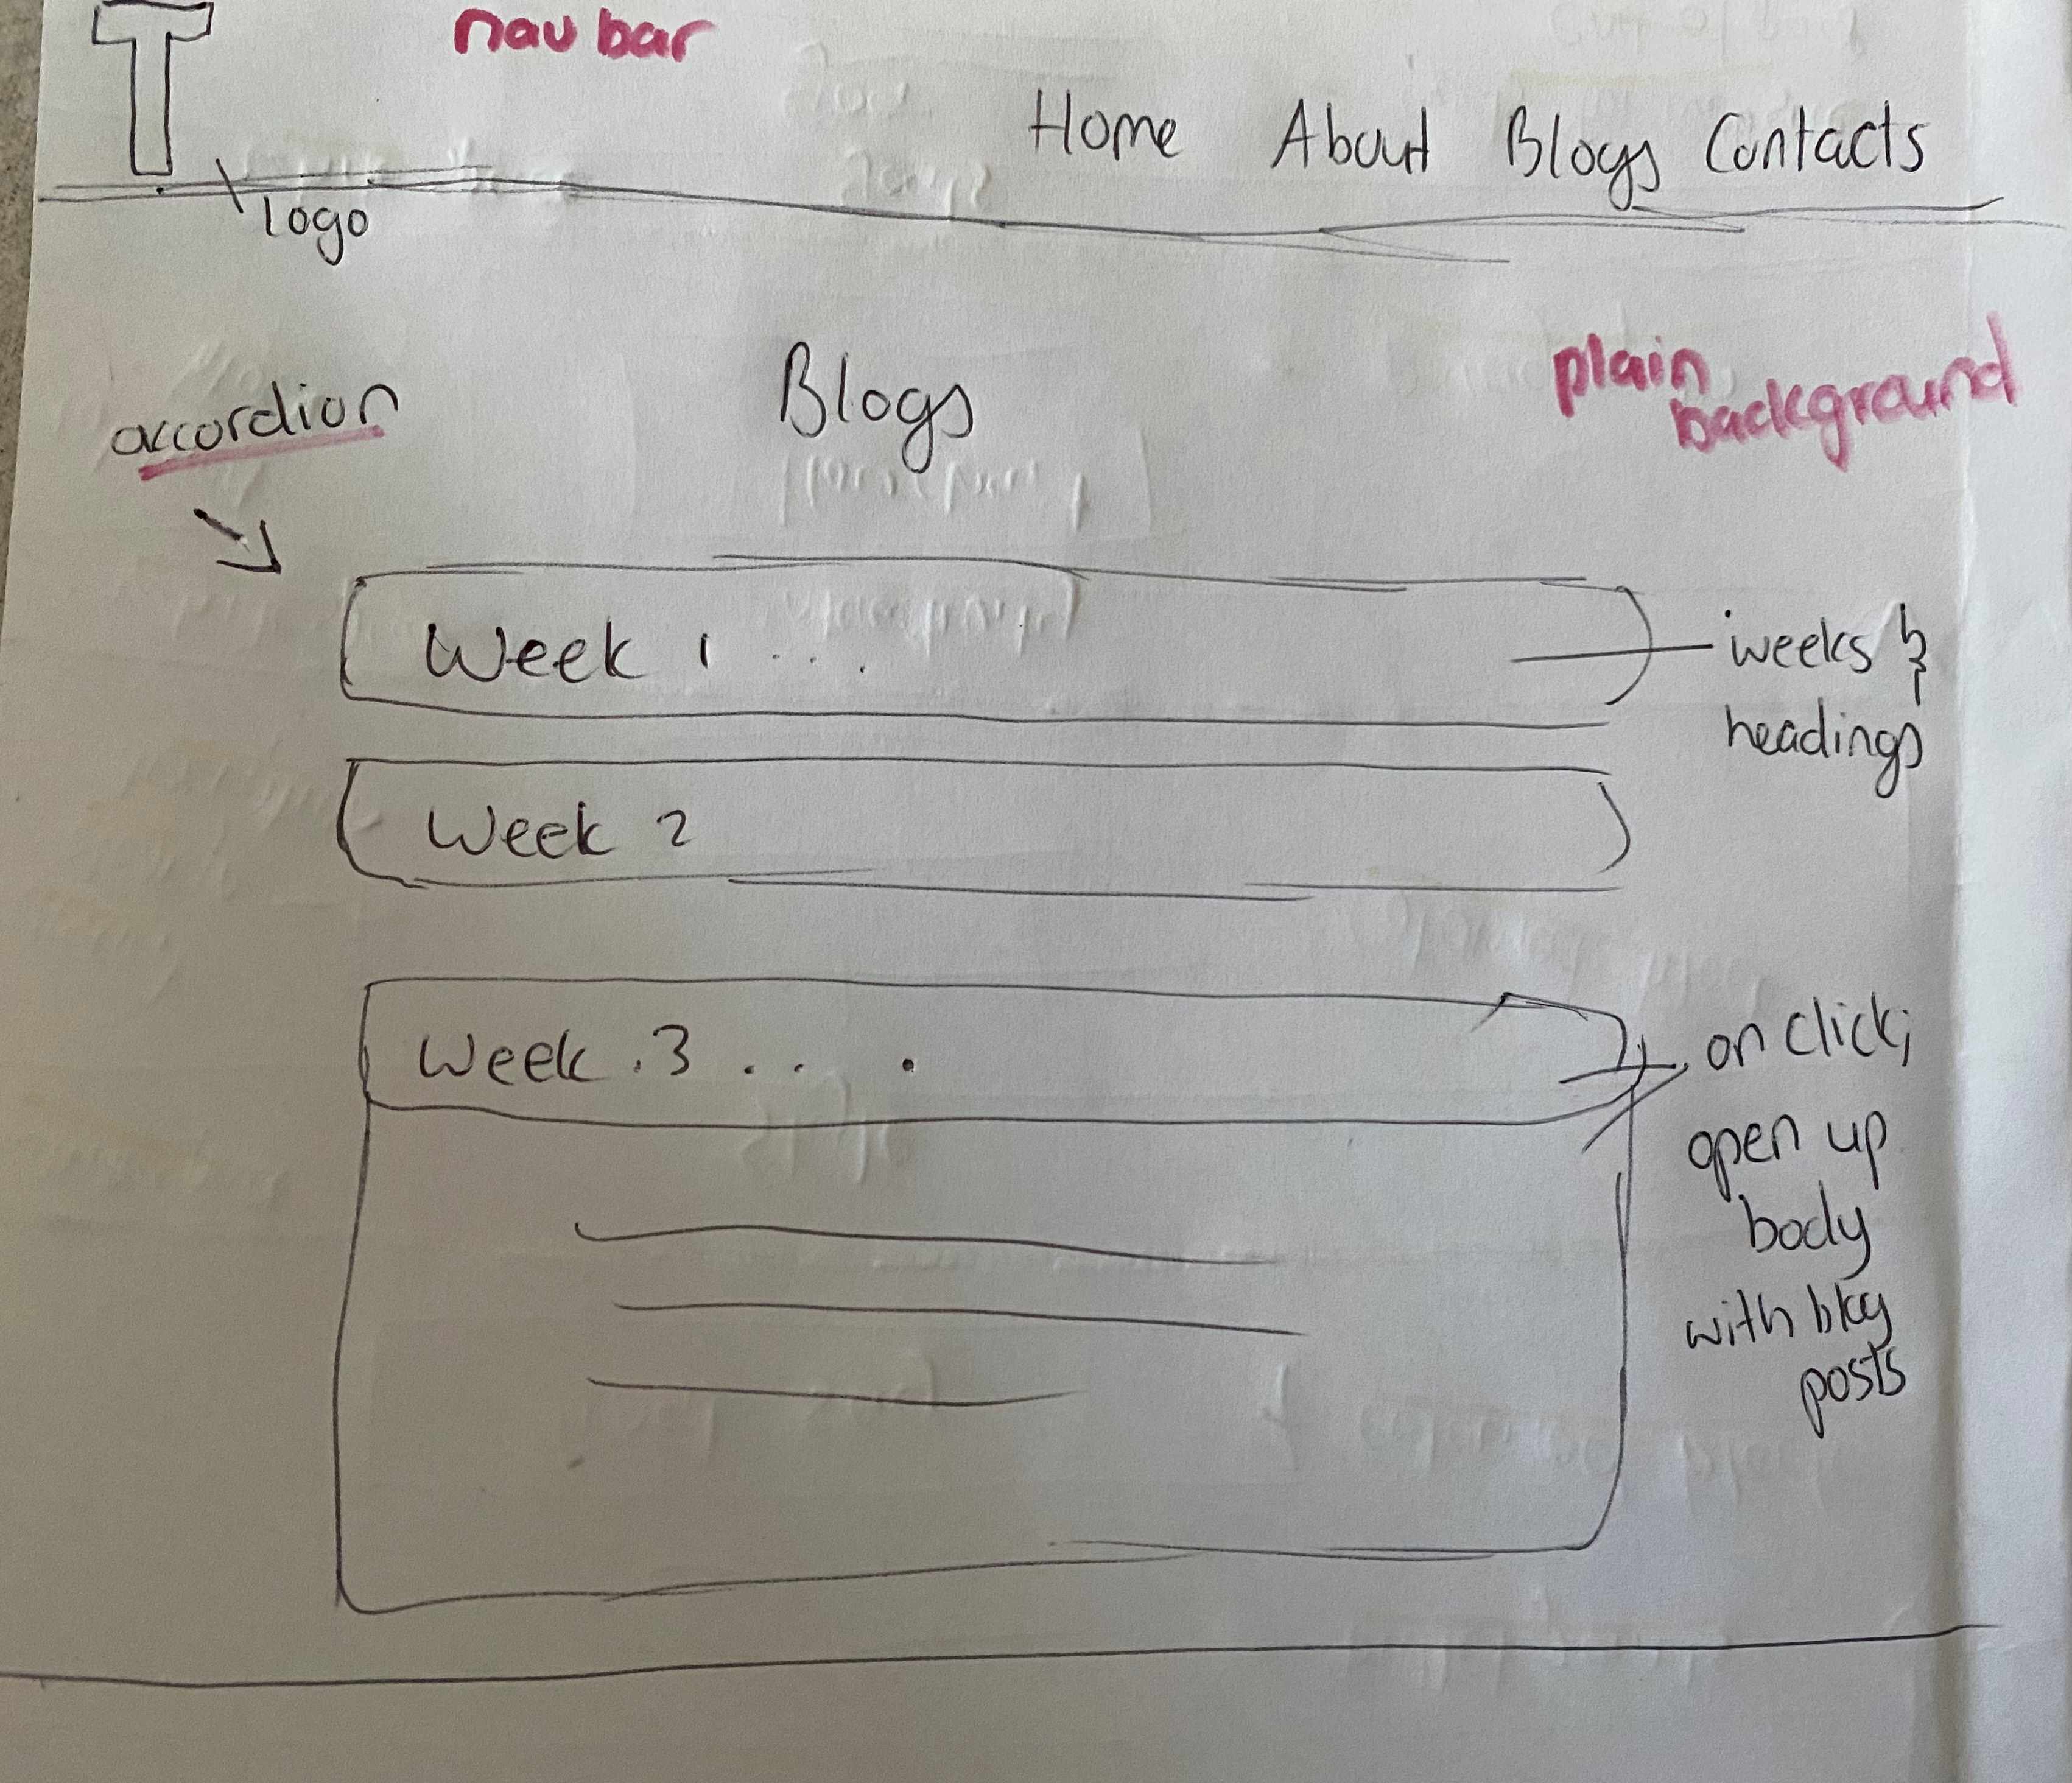 T
nav bar
Home About Blogs Contacts
logo
accordion
Blogs
plain
background
Week 1 ...
weeks &
headings
Week 2
Week 3 .. .
on click;
open up
body
with blog
posts